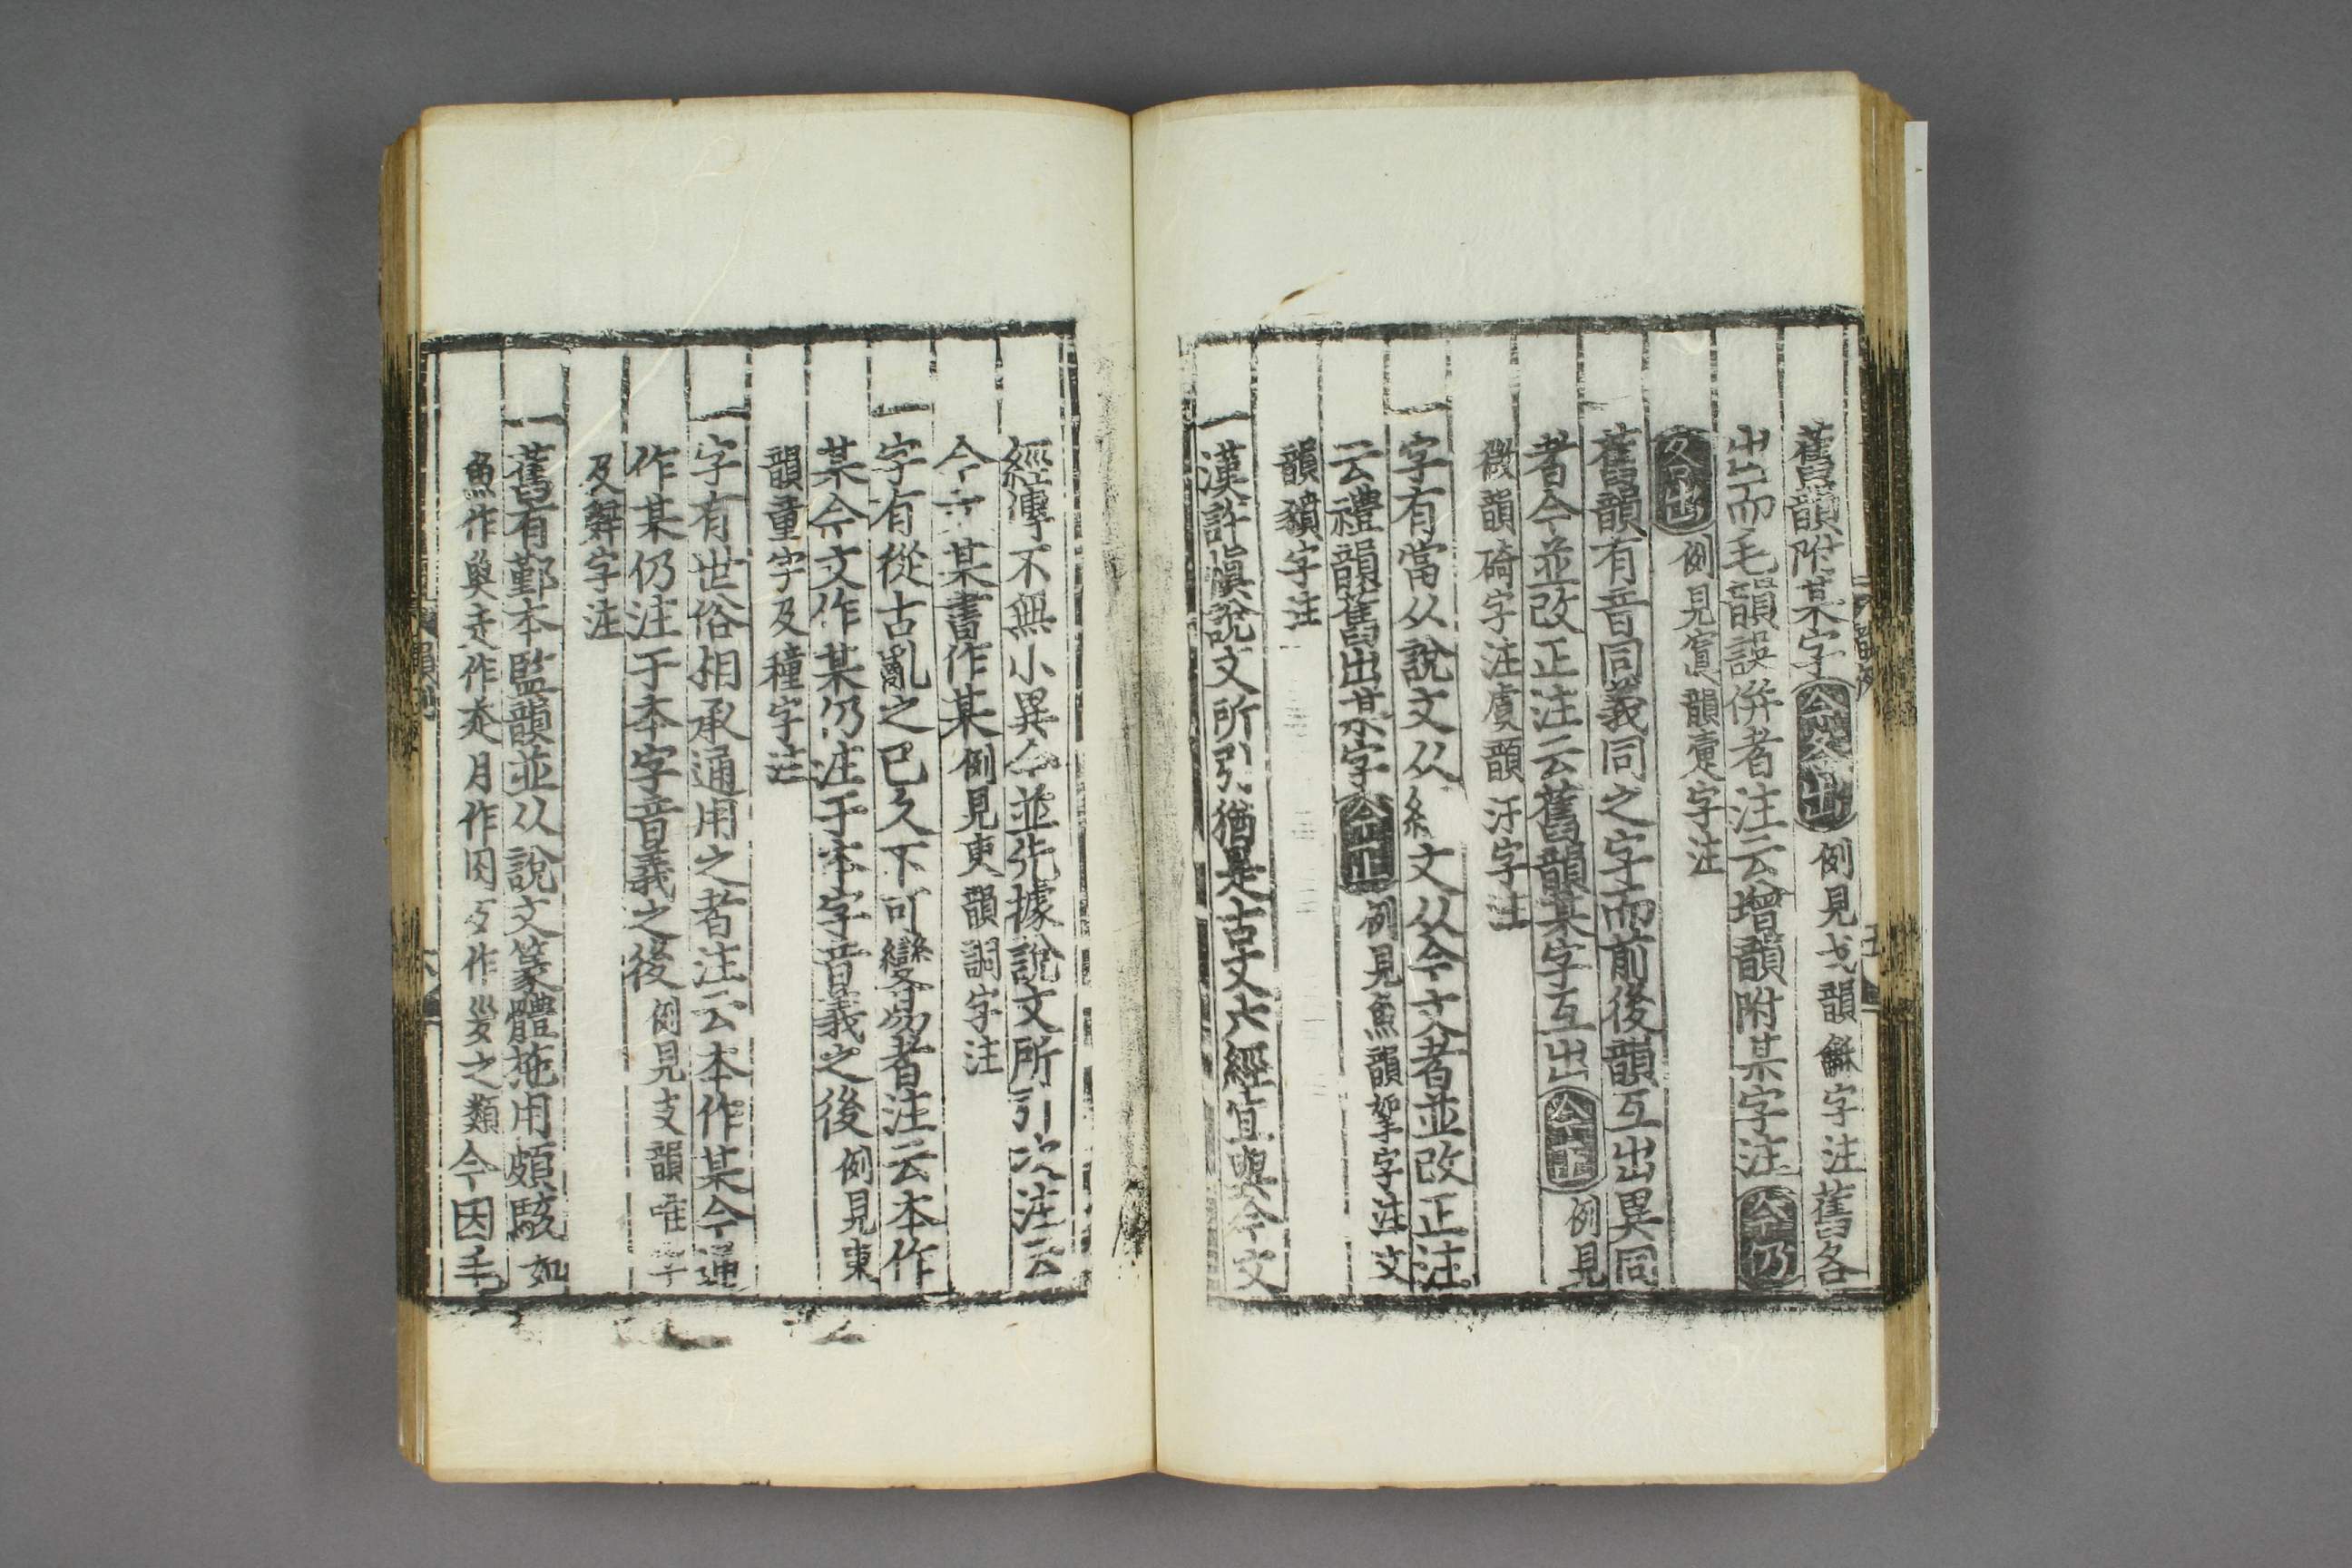 舊韻附某字今各出例見戈韻龢字注舊各
出而毛韻誤併者注云增韻附某字注今仍
各出例見寘韻字注
舊韻有音同義同之字而前後韻互出異同
者今並改正注云舊韻某字互出今正例見
微韻碕字注虞韻汙字注
一字有當从說文从今文者並改正注
云禮韻舊出某字今正例見魚韻挐字注文
韻豶字注
一漢許愼說文所引猶是古文六經宜與今文
經傳不無小異今並先據說文所引次注云
今某書作某例見東韻詷字注
一字有從古亂之已久不可變易者注云本作
某今文作某仍注于本字音義之後例見東
韻童字及穜字注
一字有世俗相承通用之者注云本作某今通
作某仍注于本字音義之後例見支韻唯字
及辤字注
一舊有鄞本監韻並从說文篆體施用頗駭如
魚作𤋳走作夭月作囚作之類今因毛